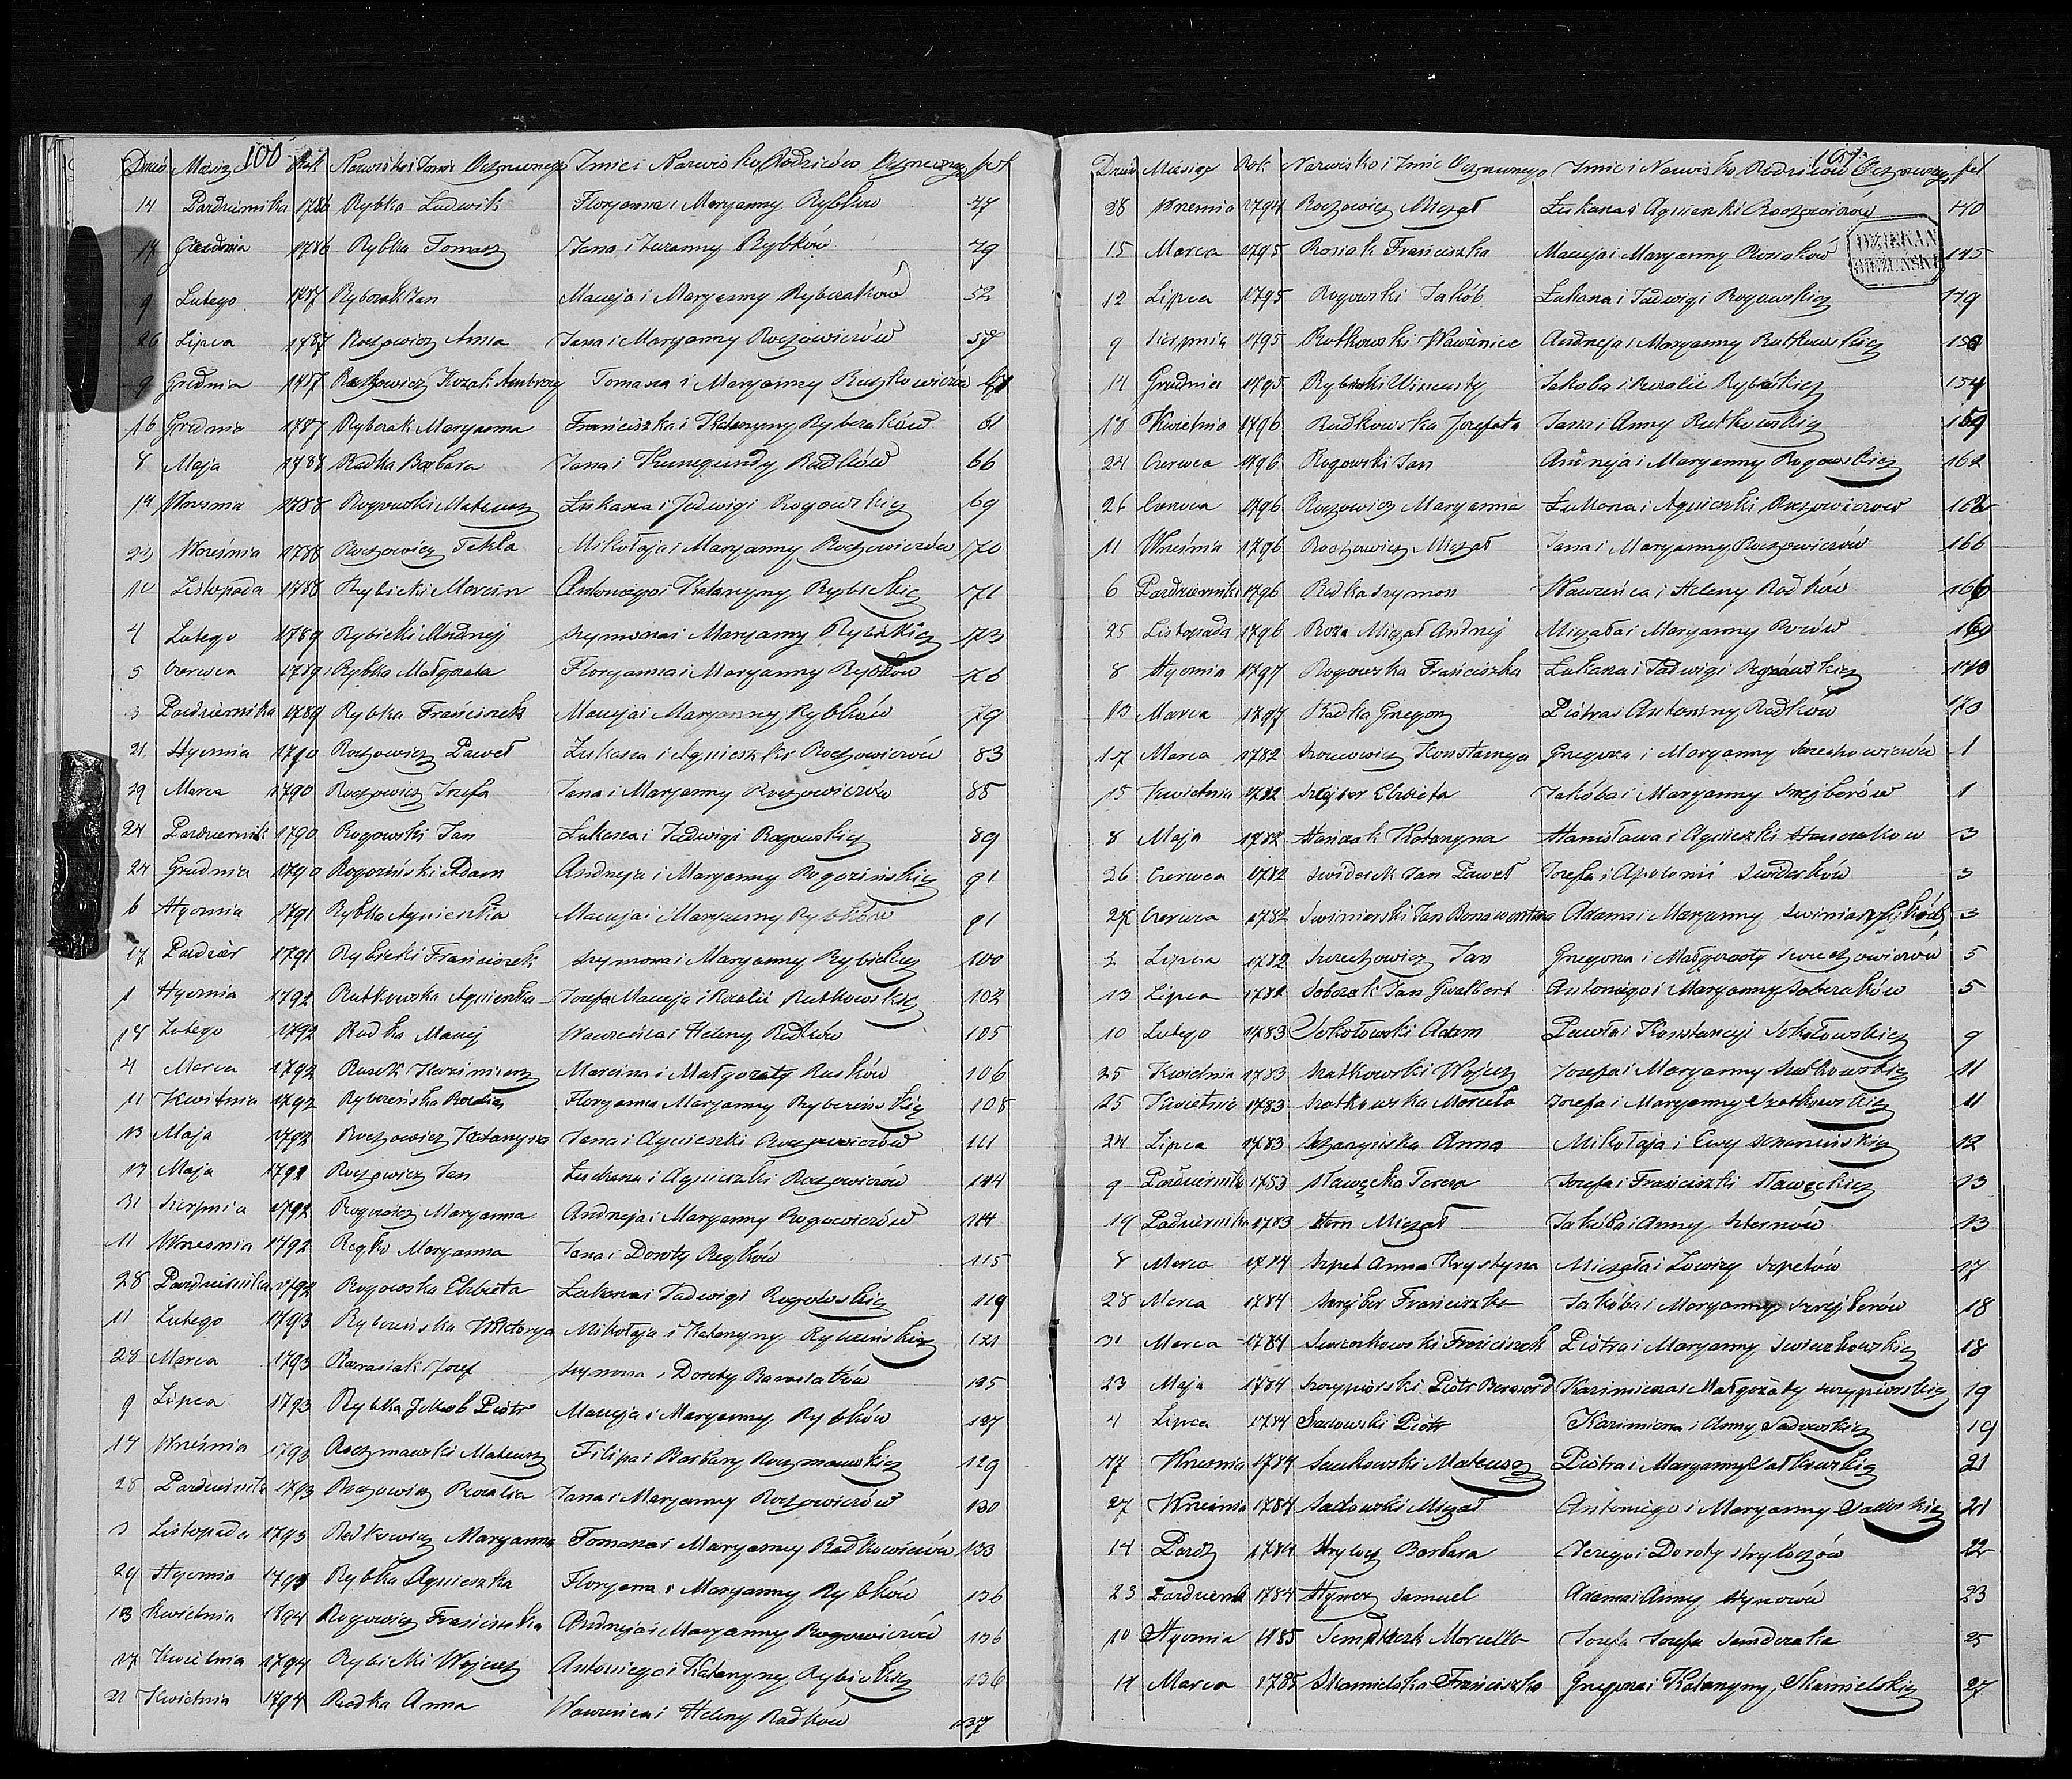 100
Dzień Miesiąc Rok Nazwisko i Imie Ochrzczonego Imie i Nazwisko Rodziców Ochrzczonego fol
14 Pazdziernika 1786 Rybka Ludwik Floryana i Maryanny Rybków 47
17 Grudnia 1786 Rybka Tomasz Jana i Zuzanny Rybków 49
9 Lutego 1787 Rybczak Jan Macieja i Maryanny Rybczaków 52
26 Lipca 1787 Roczowicz Anna Jana i Maryanny Roczowiczów 57
9 Grudnia 1787 Kozak Ambroży Tomasza i Maryanny 61
16 Grudnia 1787 Rybczak Maryanna Franciszka i Katarzyny Rybczaków 61
8 Maja 1788 Radka Barbara Jana i Kunegundy Radków 66
14 Wrzesnia 1788 Rogowski Mateusz Łukasza i Jadwigi Rogowskich 69
23 Września 1788 Roczowicz Tekla Mikołaja i Maryanny Roczowiczów 70
10 Listopada 1788 Rybicki Marcin Antoniego i Katarzyny Rybickich 71
4 Lutego 1789 Rybicki Andrzej Szymona i Maryanny Rybickich 73
5 Czerwca 1789 Rybka Małgorzata Floryana i Maryanny Rybków 76
3 Pazdziernika 1789 Rybka Franciszek Macieja i Maryanny Rybków 79
21 Stycznia 1790 Roczowicz Paweł Łukasza i Agnieszki Roczowiczów 83
19 Marca 1790 Roczowicz Józefa Jana i Maryanny Roczowiczów 85
24 Pazdziernik 1790 Rogowski Jan Łukasza i Jadwigi Rogowskich 89
24 Grudnia 1790 Rogoziński Adam Andrzeja i Maryanny Rogozińskich 91
6 Stycznia 1791 Rybka Agnieszka Macieja i Maryanny Rybków 91
17 Pazdzier 1791 Rybicki Franciszek Szymona i Maryanny Rybickich 100
1 Stycznia 1792 Rutkowska Agnieszka Józefa Macieja i Rozalii Rutkowskich 102
18 Lutego 1792 Radka Maciej Wawrzeńca i Heleny Radków 105
4 Marca 1792 Rusek Kazimierz Marcina i Małgorzaty Rusków 106
11 Kwietnia 1792 Rybczeńska Rozalia Floryana Maryanny Rybczeńskich 108
13 Maja 1792 Roczowicz Katarzyna Jana i Agnieszki Roczowiczów 111
13 Maja 1792 Roczowicz Jan Łukasza i Agnieszki Roczowiczów 114
31 Sierpnia 1792 Rogowicz Maryanna Andrzeja i Maryanny Rogowiczów 114
11 Wrzesnia 1792 Maryanna Jana i Doroty 115
28 Pazdziernika 1792 Rogowska Elzbieta Łukasza i Jadwigi Rogowskich 119
11 Lutego 1793 Rybczeńska Wiktorya Mikołaja i Katarzyny Rybczeńskich 121
28 Marca 1793 Józef Szymona i Doroty 125
9 Lipca 1793 Rybka Jakob Piotr Macieja i Maryanny Rybków 127
14 Września 1793 Roczmawski Mateusz Filipa i Barbary Roczmawskich 129
28 Pazdziernika 1793 Roczowicz Rozalia Jana i Maryanny Roczowiczów 130
3 Listopada 1793 Radkowicz Maryanna Tomasza i Maryanny Radkowiczów 133
29 Stycznia 1794 Rybka Agnieszka Floryana i Maryanny Rybków 136
13 Kwietnia 1794 Rogowicz Franciszka Andrzeja i Maryanny Rogowiczów 136
17 Kwietnia 1794 Rybicki Wojciech Antoniego i Katarzyny Rybickich 136
21 Kwietnia 1794 Radka Anna Wawrzeńca i Heleny Radków 137
101
Dzień Miesiąc Rok Nazwisko i Imie Ochrzczonego Imie i Nazwisko Rodziców Ochrzczonego fol
28 Wrzesnia 1794 Roczowicz Michał Łukasza i Agnieszki Roczowiczów 140
DZIEKAN BIEŻUŃSKI
15 Marca 1795 Rosiak Franciszka Macieja i Maryanny Rosiaków 145
12 Lipca 1795 Rogowski Jakób Łukasza i Jadwigi Rogowskich 149
9 Sierpnia 1795 Rutkowski Wawrzeniec Andrzeja i Maryanny Rutkowskich
14 Grudnia 1795 Wincenty Jakoba i Rozalii 154
18 Kwietnia 1796 Rudkowska Jozefata Jana i Anny Rutkowskich 159
24 Czerwca 1796 Rogowski Jan Andrzeja i Maryanny Rogowskich 162
26 Czerwca 1796 Roczowicz Maryanna Łukasza i Agnieszki Roczowiczów 162
11 Września 1796 Roczowicz Michał Jana i Maryanny Roczowiczów 166
6 Pazdziernika 1796 Radka Szymon Wawrzeńca i Heleny Radków 166
25 Listopada 1796 Roza Michał Andrzej Michała i Maryanny Rozów 169
8 Stycznia 1797 Rogowska Franciszka Łukasza i Jadwigi Rogowskich 170
13 Marca 1797 Radka Grzegorz Piotra i Antoniny Radków 170
17 Marca 1782 Konstancya Grzegorza i Maryanny 1
15 Kwietnia 1782 Szrejber Elzbieta Jakóba i Maryanny Szrejberów 1
8 Maja 1782 Stańczak Katarzyna Stanisława i Agnieszki Stanczaków 3
26 Czerwca 1782 Swiderek Jan Paweł Jozefa i Apolonii Swiderków 3
24 Czerwca 1782 Swiniarski Jan Bonawentura Adama i Maryanny Swiniarskich 3
2 Lipca 1782 Jan Grzegorza i Małgorzaty 5
13 Lipca 1782 Sobczak Jan Gwalbert Antoniego i Maryanny Sobczaków 5
10 Lutego 1783 Sokołowski Adam Pawła i Konstancyi Sokołowskich 9
25 Kwietnia 1783 Szatkowski Wojciech Jozefa i Maryanny Szatkowskich 11
25 Kwietnia 1783 Szatkowska Marcela Jozefa i Maryanny Szatkowskich 11
24 Lipca 1783 Anna Mikołaja i Ewy 12
9 Pazdziernika 1783 Sławęcka Teresa Jozefa i Franciszki Sławęckich 13
19 Pazdziernika 1783 Stern Michał Jakóba i Anny Szternów 13
8 Marca 1784 Szpet Anna Krystyna Michała i Lowizy Szpetów 17
28 Marca 1784 Szrejber Franciszka Jakóba i Maryanny Szrejberów 18
31 Marca 1784 Franciszek Piotra i Maryanny 18
23 Maja 1784 Skrzypiński Piotr Bernard Kazimierza i Małgorzaty Skrzypińskich 19
4 Lipca 1784 Sadowski Piotr Kazimierza i Anny Sadowskich 19
17 Wrzesnia 1784 Mateusz Piotra i Maryanny 21
27 Września 1784 Sadowski Michał Antoniego i Maryanny Sadoskich 21
14 Pazdz 1784 Barbara Jerzego i Doroty 22
23 Pazdziernik 1784 Samuel Adama i Anny 23
10 Stycznia 1785 Marcella Jozefa 25
14 Marca 1785 Skamielska Franciszka Grzegorza i Katarzyny Skamielskich 27